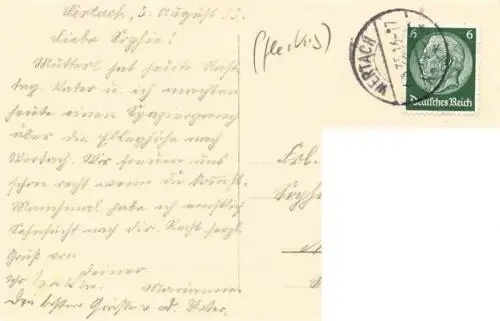 Wertach, 3. August 33.
Liebe Sophie!
Mutterl hat heute Rast-
tag. Vater u. ich machten
heute einen Spaziergang
über die Elleghöhe nach
Wertach. Wir freuen uns
schon recht wenn du kommst.
Manchmal habe ich ernstlich
Sehnsucht nach dir. Recht herzl.
Grüß von
deiner
Marianne
Die besten Grüße v. d. Vater.
WERTACH
6
6
Deutsches Reich
Frl.
Sophie